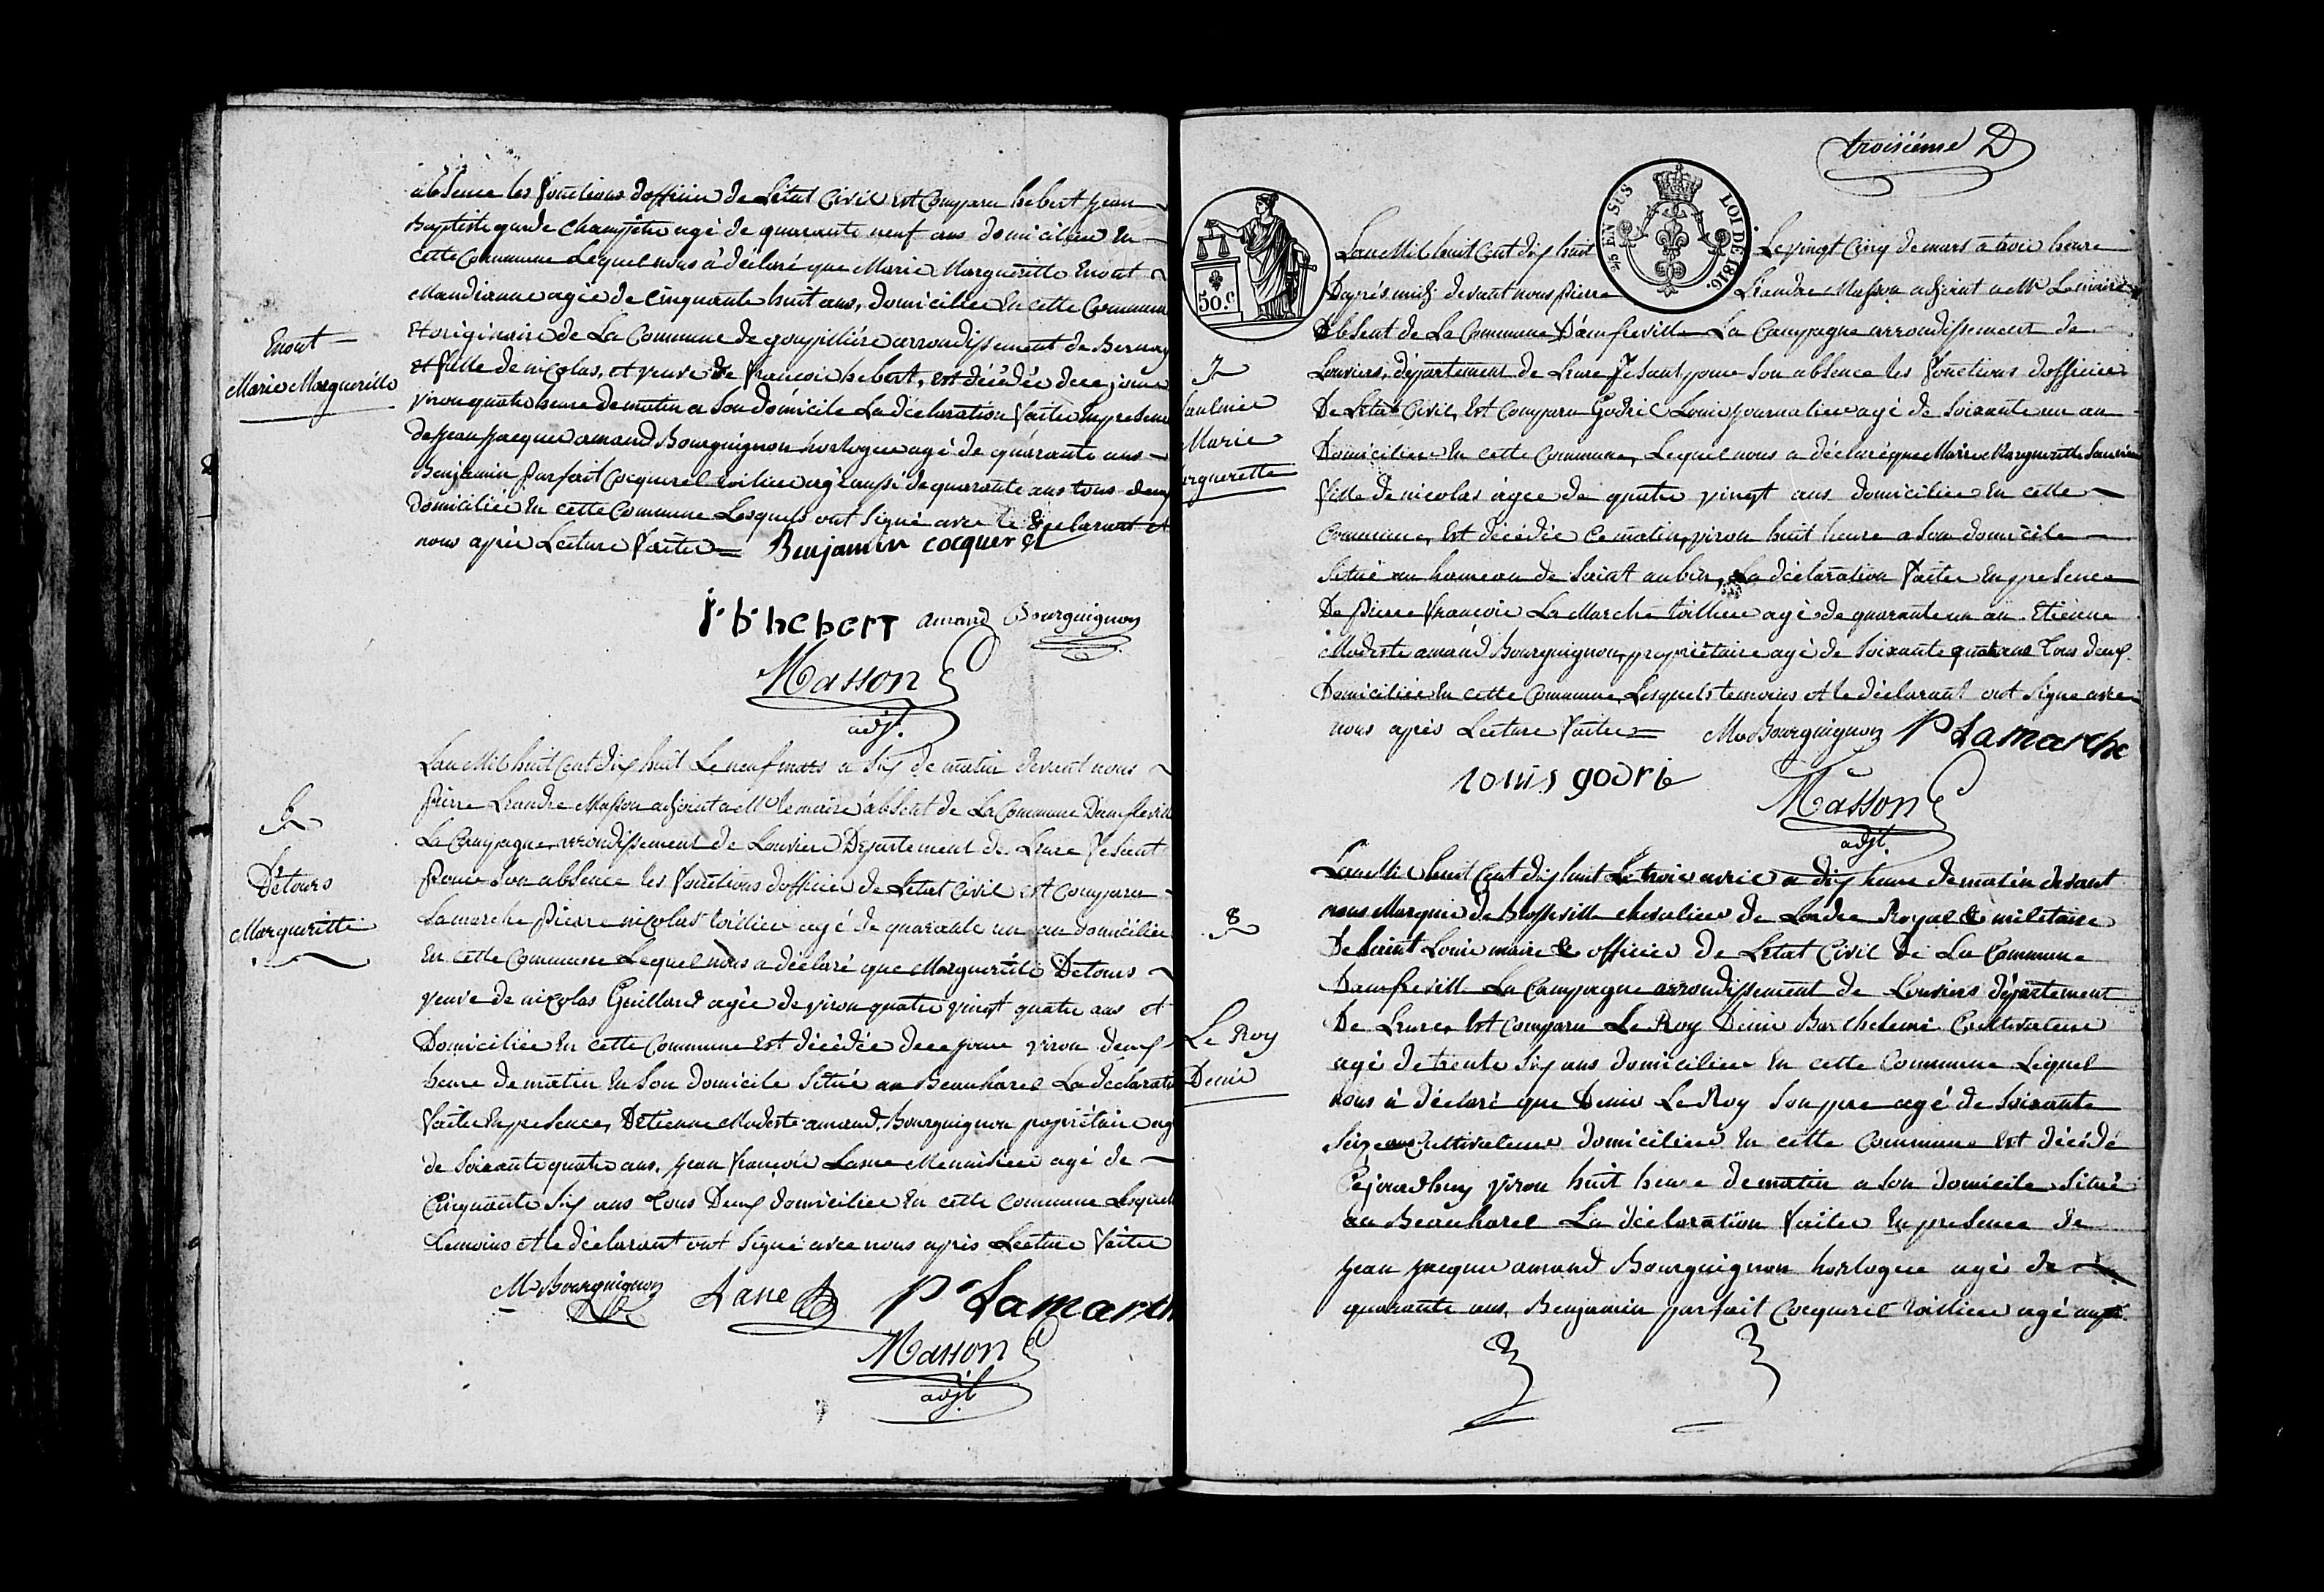 absence les fonctions dofficier de Letat Civil Est Comparu hebert jean
Baptiste garde Champêtre agé de quarante neuf ans domicilier En
cette Commune Lequel nous à déclaré que Marie Margueritte Enout
Mandianne agée de Cinquante huit ans, domiciliée En cette Commune
Et originaire de La Commune de goupillière arrondissement de Bernay
et fille de nicolas, et veuve de francois hebert, est décédée de ce jour
viron quatre heure de matin a son domicile La déclaration faitte En presence
de jean jacque amand Bourguignon horloger agé de quarante ans
Benjamin parfait Cocquerel toilier agé aussi de quarante ans tous deux
domicilier En cette Commune Lesquels ont signé avec le declarant et
nous après Lecture faitte Benjamin cocquerel
Enout
Marie Margueritte
j.b.hebert amand Bourguignon
Masson
adj.
Lan Mil huit Cent dix huit Le neuf mars a six de matin devant nous
pierre Leandre Masson adjoint a Mr Lemaire absent de La Commune Damfreville
La Campagne, arrondissement de Louvier Département de Leure fesant
pour son absence les fonctions dofficier de Letat Civil est Comparu
Lamarche pierre nicolas toilier agé de quarante un an domicilier
En cette Commune Lequel nous a déclaré que Margueritte Détours
veuve de nicolas Guillard agée de viron quatre vingt quatre ans et
Domiciliée En cette Commune est décédée de ce jour viron deux
heure de matin En Son domicile Situé au Beauharel La déclarati
faitte En presence, Détienne Modeste amand Bourguignon propriétaire ag
de Soixante quatre ans, jean francois Lasne Menuisier agé de
Cinquante Six ans tous Deux domicilier En cette commune Lesquels
temoins et le déclarant ont Signé avec nous après Lecture faitte
Détours
Margueritte
M Bourguignon Lane P Lamarch
Masson
adjt
troisième D
50.C
EN SUS
LOI DE 1816.
Lan Mil huit Cent dix huit Le vingt Cinq de mars a trois heure
Daprés midi devant nous pierre Leandre Masson adjoint a Mr Lemaire
absent de La Commune D'amfreville La Campagne arrondissement de
Louviers, département de Leure fesant pour Son absence les fonctions dofficier
De Letat Civil, Est Comparu Godric Louis journalier agé de soixante un an
Domicilier En cette Commune, Lequel nous a déclaré que Marie Marguerite Saunier
fille de nicolas agée de quatre vingt ans domiciliée En cette
Commune, Est décédée Ce matin, viron huit heure a Son domicile
Situé au hameau de Saint aubin, La déclaration faitte En presence
De pierre francois La Marche toillier agé de quarante un an Etienne
Modeste amand Bourguignon, propriétaire agé de Soixante quatre ans tous deux
Domicilier En cette Commune Lesquels temoins et le déclarant ont Signé avec
nous après Lecture faitte M Bourguignon P Lamarche
7
Marie
arguerette
Louis godric
Masson
adjt.
Lan Mil huit Cent dix huit Le trois avril a dix heure de matin devant
nous Marquis de Blosseville chevalier de Lordre Royal & militaire
De Saint Louis maire & officier de Letat Civil De La Commune
Damfreville La Campagne arrondissement de Louviers département
De Leure, Est Comparu Le Roy Denis Barthelemi Cultivateur
agé de trente Six ans domicilier En cette Commune Lequel
nous à déclaré que Denis Le Roy Son pre agé de Soixante
Seize ans Cultivateur domicilier En cette Commune Est décédé
Cejourdhuy viron huit heure de matin a son domicile Situé
au Beauharel La déclaration faitte En presence de
jean jacque amand Bourguignon horloger agé de
quarante ans, Benjamin parfait Cocquerel toillier agé aussi
8
Le Roy
Denis